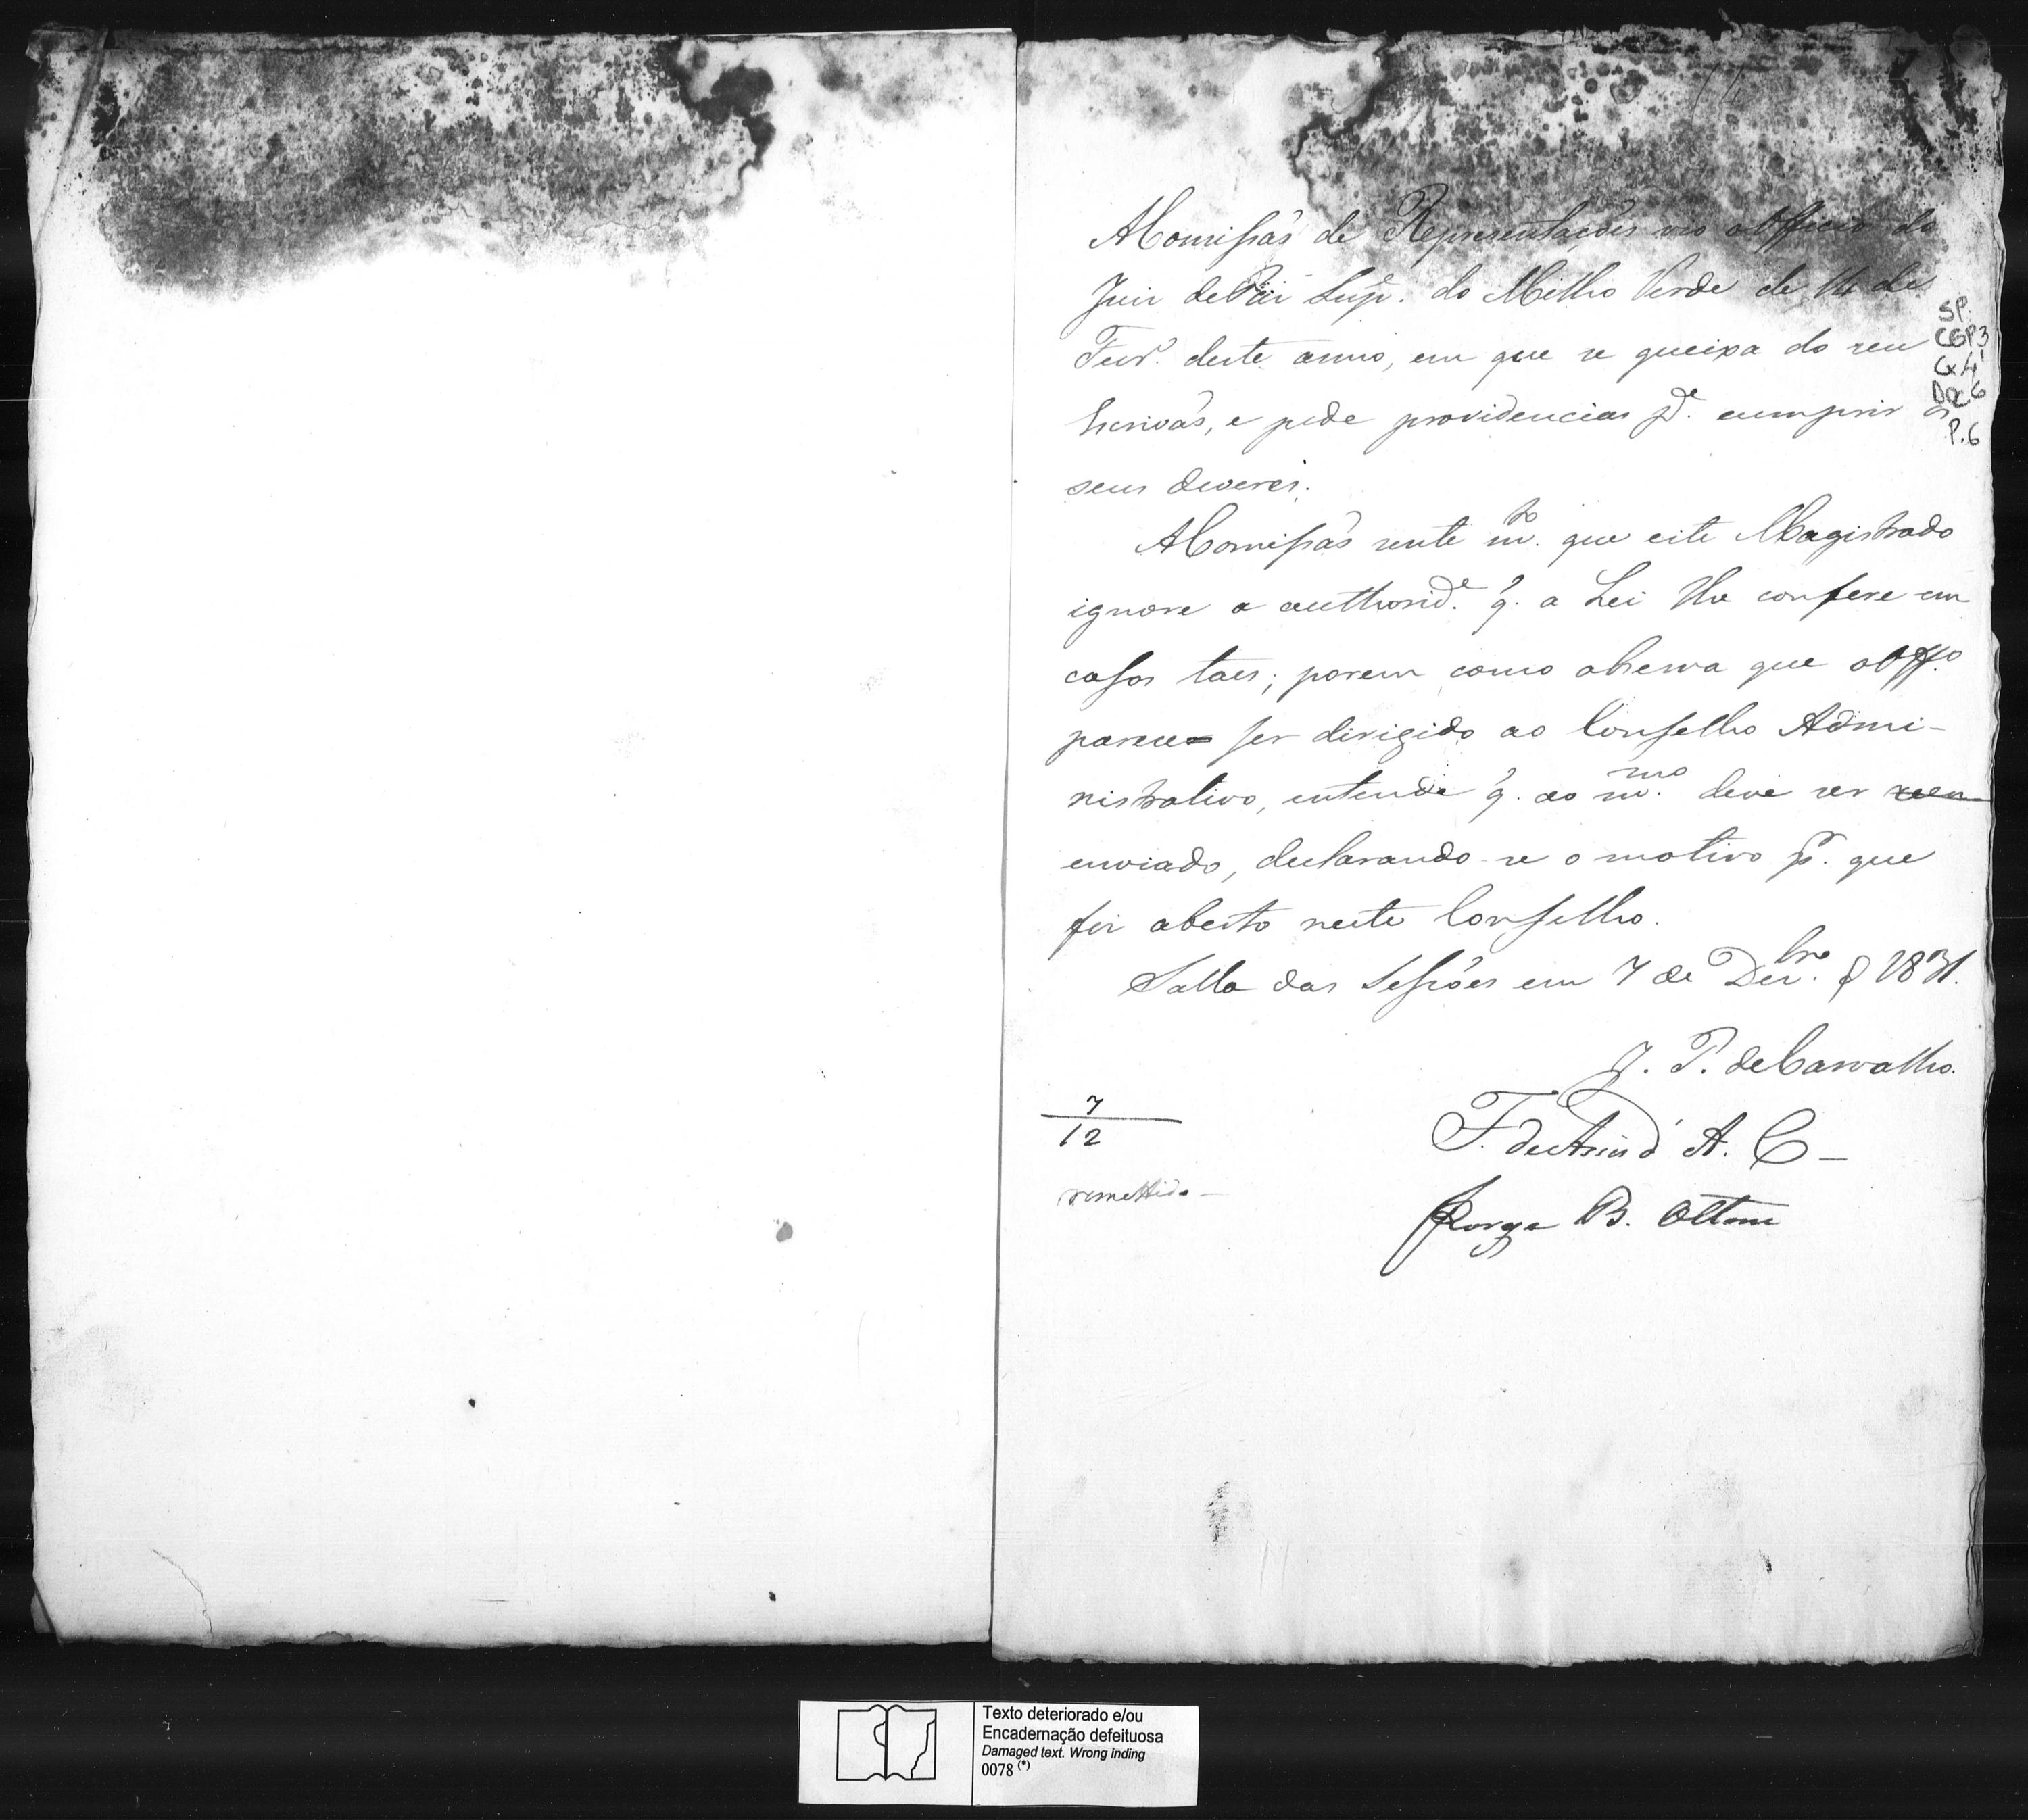 A Comissaõ de Representações vio o Officio do
Juiz de Paz Sup. do Milho Verde de 14 de
Fevr.º deste anno, em que se queixa do seu
Escrivaõ, e pede providencias p.ª cumprir os
seus deveres.
A Comissaõ sente m.to que este Magistrado
ignore a authorid.e q. a Lei lhe confere em
casos taes; porem como observa que o Off.º
parece ser dirigido ao Conselho Admi-
nistrativo, entende q. ao m.mo deve ser
enviado, declarando-se o motivo p.r que
foi aberto neste Conselho.
Salla das Sessões em 7 de Dez.bro de 1831.
J. P. de Carvalho.
F. de A. C
Jorge B. Ottoni
7
12
remettido
SP
CGP3
Cx4
Doc 6
P.6
Texto deteriorado e/ou
Encadernação defeituosa
Damaged text. Wrong inding
0078 (*)